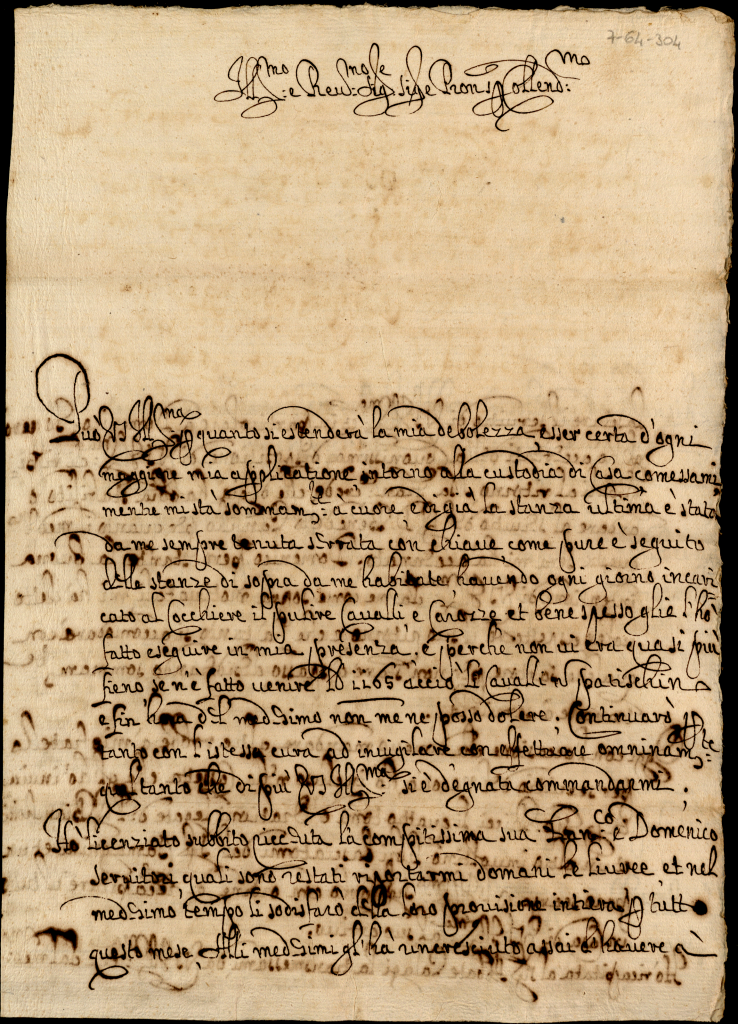 7-64-304
Ill.mo e Rev.mo Sig.re Sig.e Pron Collend.mo
Può V.S. Ill.ma p quanto si estenderà la mia debolezza, esser certa d'ogni
maggiore mia applicatione intorno alla custodia di Casa comessami
mentre mi stà sommam.te a cuore, e di già la stanza ultima è stata
da me sempre tenuta serrata con chiave come pure è seguito
delle stanze di sopra da me habitate, havendo ogni giorno incari
cato al Cocchiere il pulire Cavalli, e Carozze et bene spesso glie l'hò
fatto eseguire in mia presenza, e perche non vi era quasi più
fieno se n'è fatto venire lb 1165 acciò li Cavalli nō patischin
e fin'hora del medesimo non me ne posso dolere. Continuarò p.te
tanto con l'istessa cura ad invigilare con effettuare omninam.te
quel tanto che di più V.S. Ill.ma si è degnata commandarmi.
Hò licenziato subbito riceuta la compitissima sua Fran.co e Domenico
servitori quali sono restati riportarmi domani le livree et nel
medesimo tempo li sodisfarò della loro provisione intiera p tutt
questo mese. Alli medesimi gl'hà rincresciuto assai d'havere à